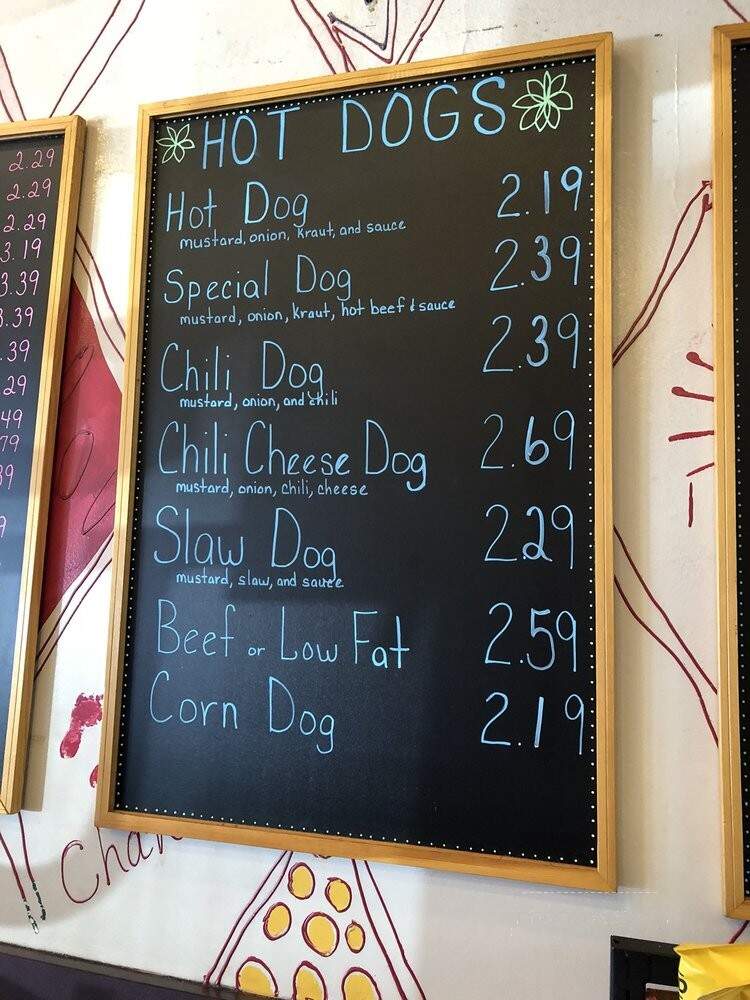 HOT DOGS
Hot Dog 2.19
mustard, onion, Kraut, and sauce
Special Dog 2.39
mustard, onion, kraut, hot beef & sauce
Chili Dog 2.39
mustard, onion, and chili
Chili Cheese Dog 2.69
mustard, onion, chili, cheese
Slaw Dog 2.29
mustard, slaw, and sauce
Beef or Low Fat 2.59
Corn Dog 2.19
2.29
2.29
2.29
3.19
3.39
3.39
.39
.29
.49
.79
Char